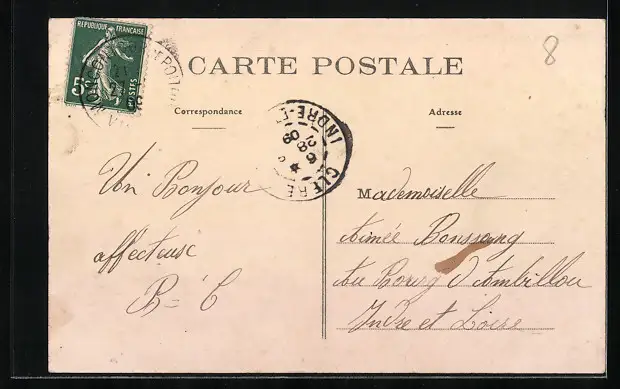 REPUBLIQUE FRANÇAISE
5c POSTES
8
CARTE POSTALE
Correspondance
Adresse
INDRE-
CLERE
Un Bonjour
affectueux
B= C
Mademoiselle
Aimée
Au Bourg D Ambillou
Indre et Loire